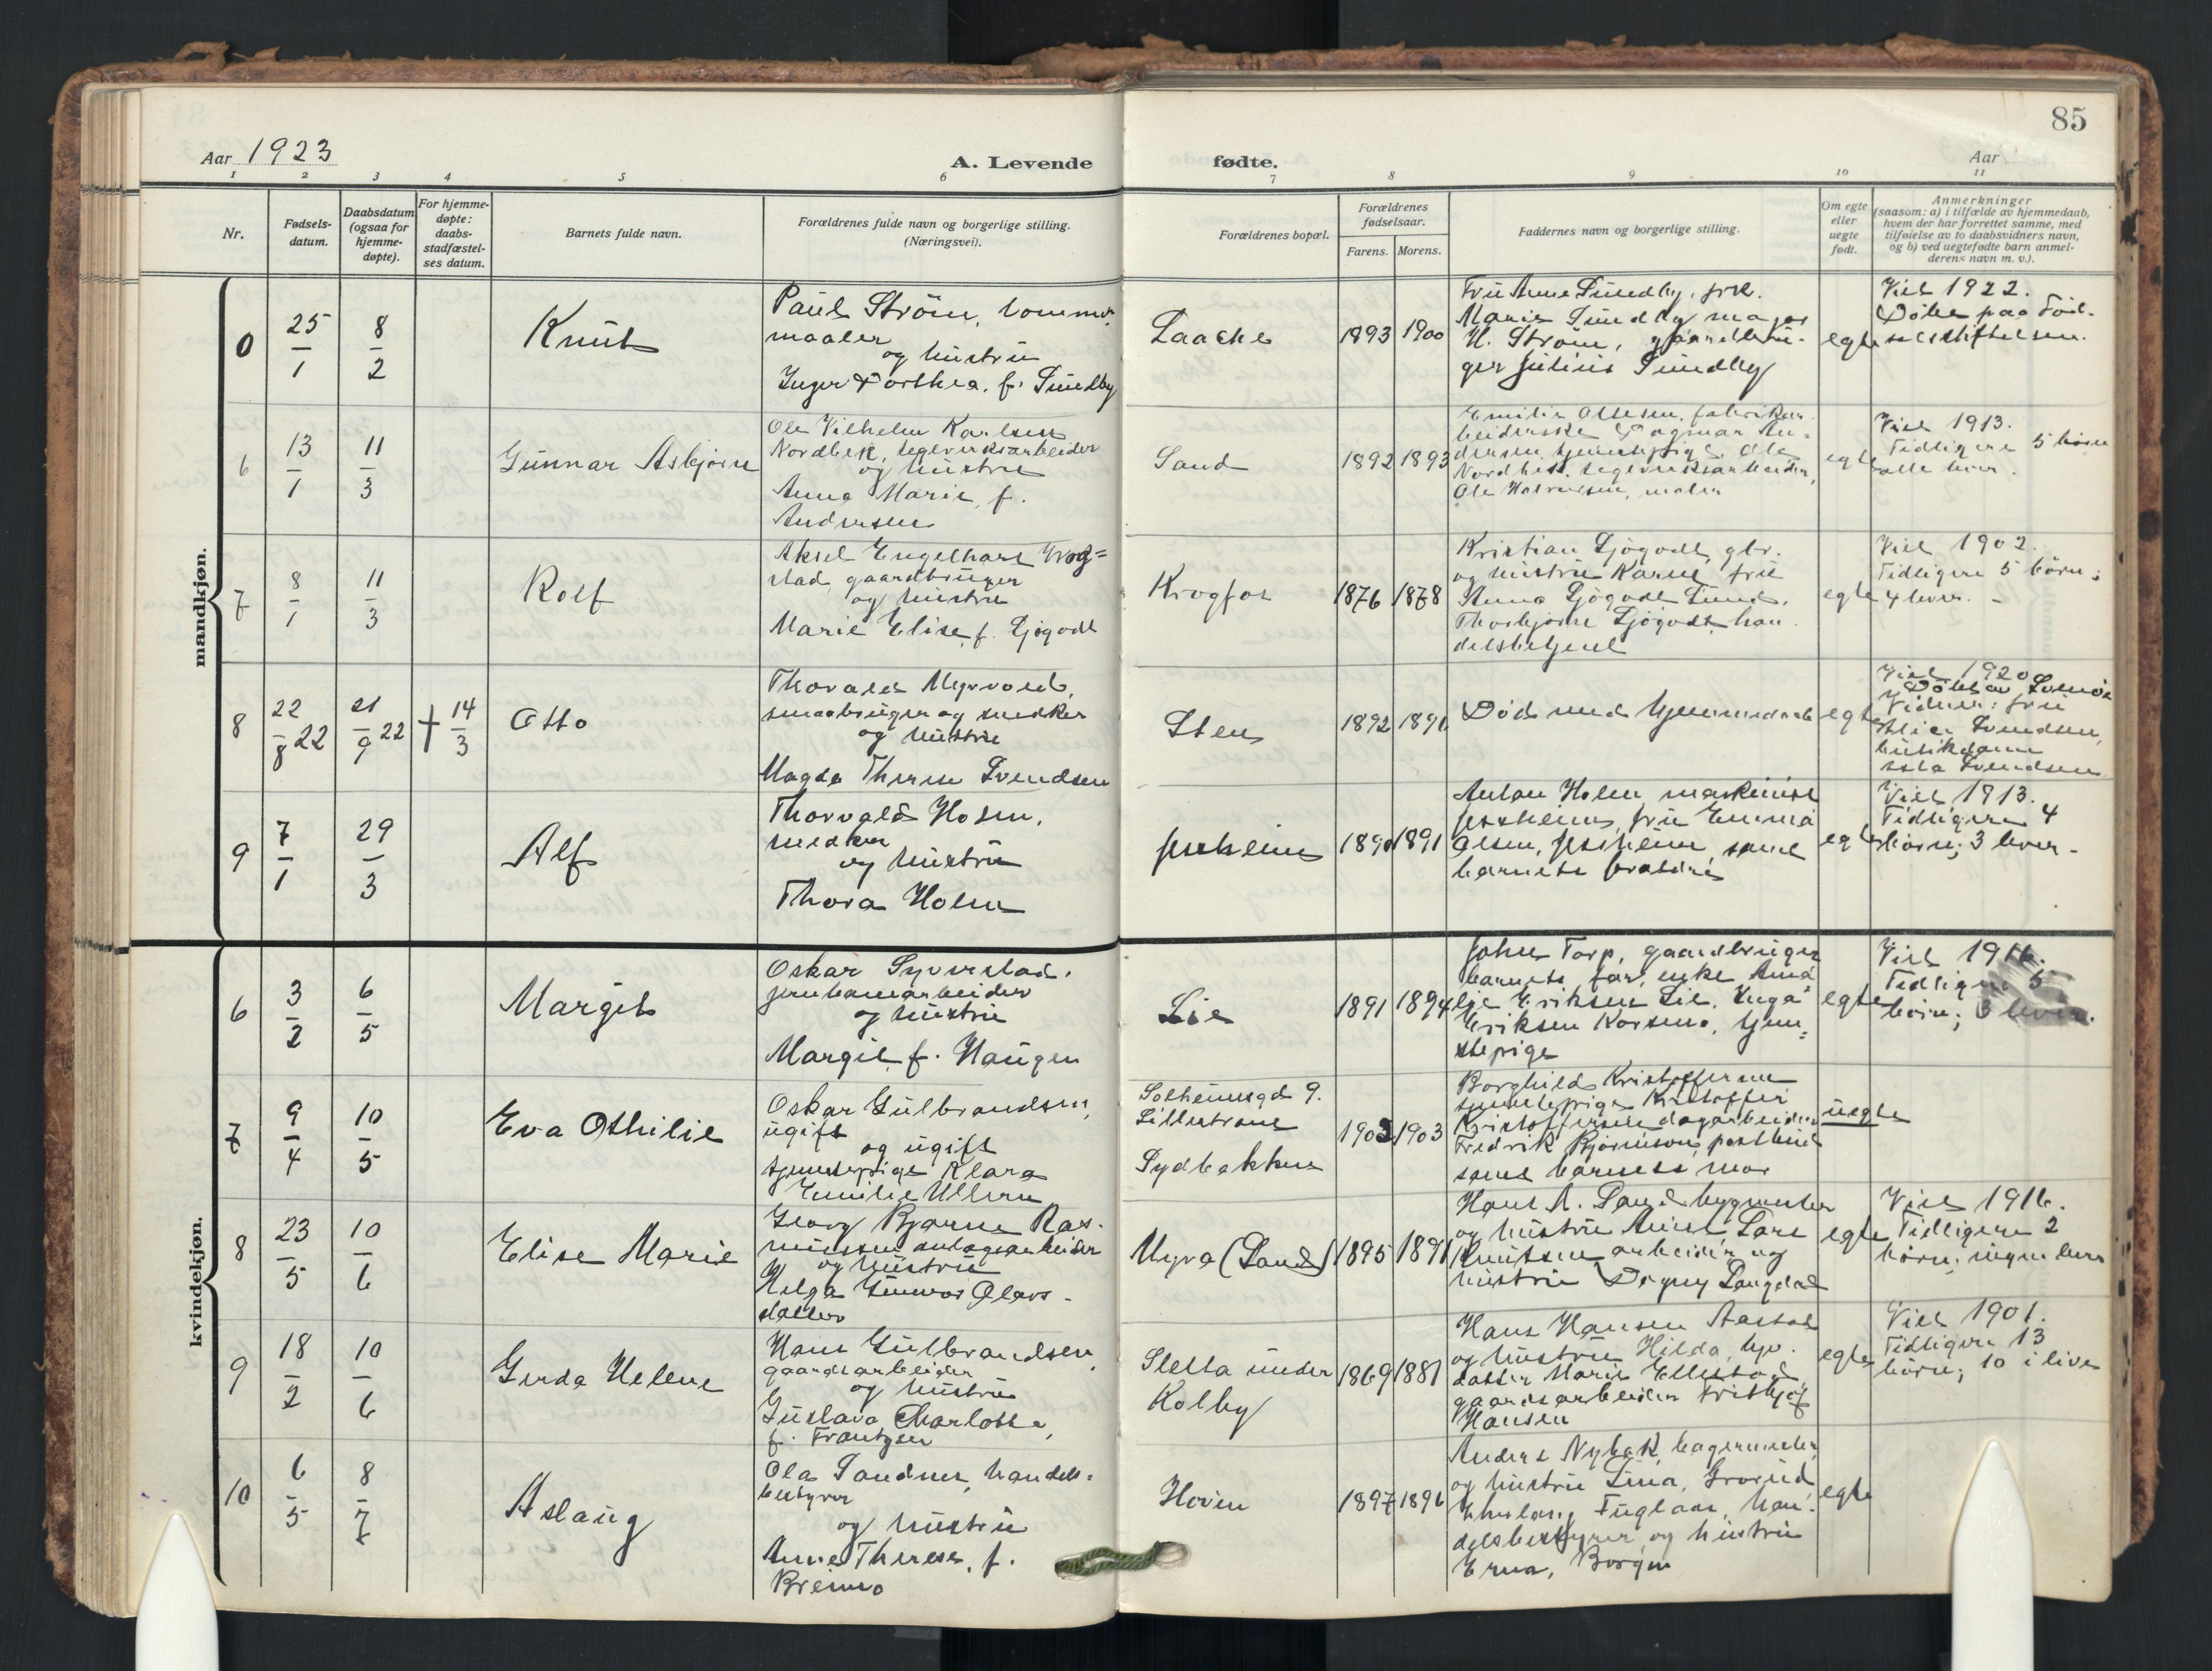 85
Aar 1923
A. Levende
fødte.
Aar
1 2 3 4 5 6 7 8 9 10 11
Nr.
Fødsels-
datum.
Daabsdatum
(ogsaa for
hjemme-
døpte).
For hjemme-
døpte:
daabs-
stadfæstel-
ses datum.
Barnets fulde navn.
Forældrenes fulde navn og borgerlige stilling.
(Næringsvei).
Forældrenes bopæl.
Forældrenes
fødselsaar.
Farens. Morens.
Faddernes navn og borgerlige stilling.
Om egte
eller
uegte
født.
Anmerkninger
(saasom: a) i tilfælde av hjemmedaab,
hvem der har forrettet samme, med
tilføielse av to daabsvidners navn,
og b) ved uegtefødte barn anmel-
derens navn m. v.).
mandkjøn.
25/1 8/2
Knut
Paul Strøm,
maaler
og hustru
Inger Dorthea, f. Sundby
Laache
1893 1900
Fru Anne Sundby, frk.
Marie Sundby, major
H. Strøm, gaardbru-
ger Julius Sundby
egte
Viet 1922.
Døbt paa Fød-
selsstiftelsen.
6 13/1 11/3
Gunnar Asbjørn
Ole Vilhelm Karlsen
Nordbek, teglverksarbeider
og hustru
Anna Marie, f.
Andersen
Sand
1892 1893
Emilie Olsesen, fabrikar-
beiderske Dagmar An-
dersen, tjenestepige, Ole
Nordbek, teglverksarbeider,
Ole Halvorsen, maler
egte
Viet 1913.
Tidligere 5 børn
alle lever.
7 8/1 11/3
Rolf
Aksel Engelhart Trog=
stad, gaardbruger
og hustru
Marie Elise, f. Ljøgodt
Krogfos
1876 1878
Kristian Ljøgodt, gbr.
og hustru Karen, fru
Anna Ljøgodt Lund,
Thorbjørn Ljøgodt, han-
delsbetjent
egte
Viet 1902.
Tidligere 5 børn;
4 lever. -
8 22/8 22 21/9 22 † 14/3
Otto
Thorvald Myrvold,
smaabruger og snedker
og hustru
Magda Therese Svendsen
Sten
1892 1896
Død med hjemmedaab
egte
Viet 1920
Døbt av
Vidner: fru
Svendsen,
butikdame
Svendsen
9 7/1 29/3
Alf
Thorvald Holm,
snedker
og hustru
Thora Holm
Jessheim
1890 1891
Anton Holm, maskinist
Jessheim, fru Emma
Olsen, Jessheim, samt
barnets forældre
egte
Viet 1913.
Tidligere 4
børn; 3 lever -
kvindekjøn.
6 3/2 6/5
Margit
Oskar Syverstad,
jernbanearbeider
og hustru
Margit, f. Haugen
Lie
1891 1894
John Torp, gaardbruger
barnets far, enke Ama
lie Eriksen Lie, Inga
Eriksen Korsmo, tjene-
stepige
egte
Viet 1916.
Tidligere 5
børn; 3 lever.
7 9/4 10/5
Eva Othilie
Oskar Gulbrandsen,
ugift
og ugift
tjenestepige Klara
Emilie Ullern
Solheimsgd 9.
Lillestrøm
Sydbakken
1902 1903
Borghild Kristoffersen
tjenestepige Kristoffer
Kristoffersen dagarbeider
Fredrik Bjørnson, postbud
samt barnets mor
uegte
8 23/5 10/6
Elise Marie
Georg Bjarne Ras-
mussen anlægsarbeider
og hustru
Helga Gunvor Olavs-
datter
Myra (Sand)
1895 1896
Hans A. Sand bygmester
og hustru Anna, Lars
Knutsen arbeider og
hustru Dagny Langdal
egte
Viet 1916.
Tidligere 2
børn; ingen lever
9 18/2 10/6
Gerda Helene
Hans Gulbrandsen,
gaardsarbeider
og hustru
Gustava Charlotte,
f. Frantzen
Sletta under
Kolby
1869 1881
Hans Hansen Aastad
og hustru Hilda, hjv.
datter Marie Ellestad,
gaardsarbeider Frithjof
Hansen
egte
Viet 1901.
Tidligere 13
børn; 10 i live
10 6/5 8/7
Aslaug
Ola Sandnes, handels-
bestyrer
og hustru
Anne Therese, f.
Breimo
Hovin
1897 1896
Anders Nybak, bagermester,
og hustru Lina, Grorud,
Fuglaas, han-
delsbestyrer og hustru
Erna, Borgen
egte